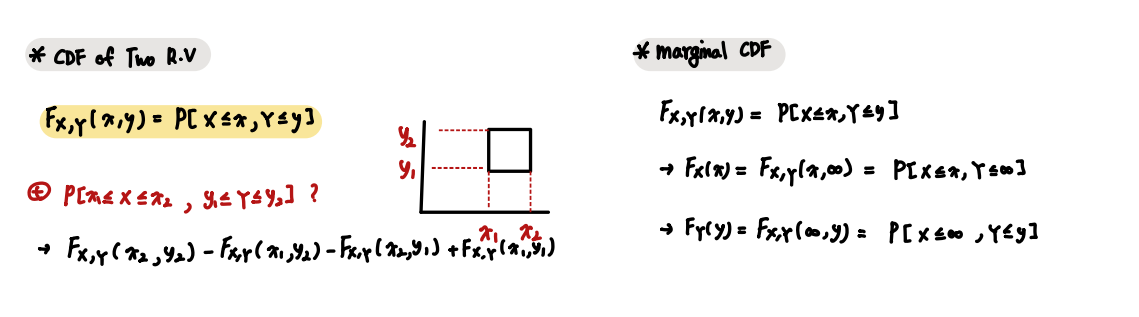 * CDF of Two R.V
F_{X,Y}(x,y) = P[X≤x, Y≤y]
⊕ P[x₁≤X≤x₂, y₁≤Y≤y₂] ?
→ F_{X,Y}(x₂,y₂) - F_{X,Y}(x₁,y₂) - F_{X,Y}(x₂,y₁) + F_{X,Y}(x₁,y₁)
y₂
y₁
x₁ x₂
* marginal CDF
F_{X,Y}(x,y) = P[X≤x, Y≤y]
→ F_X(x) = F_{X,Y}(x,∞) = P[X≤x, Y≤∞]
→ F_Y(y) = F_{X,Y}(∞,y) = P[X≤∞, Y≤y]